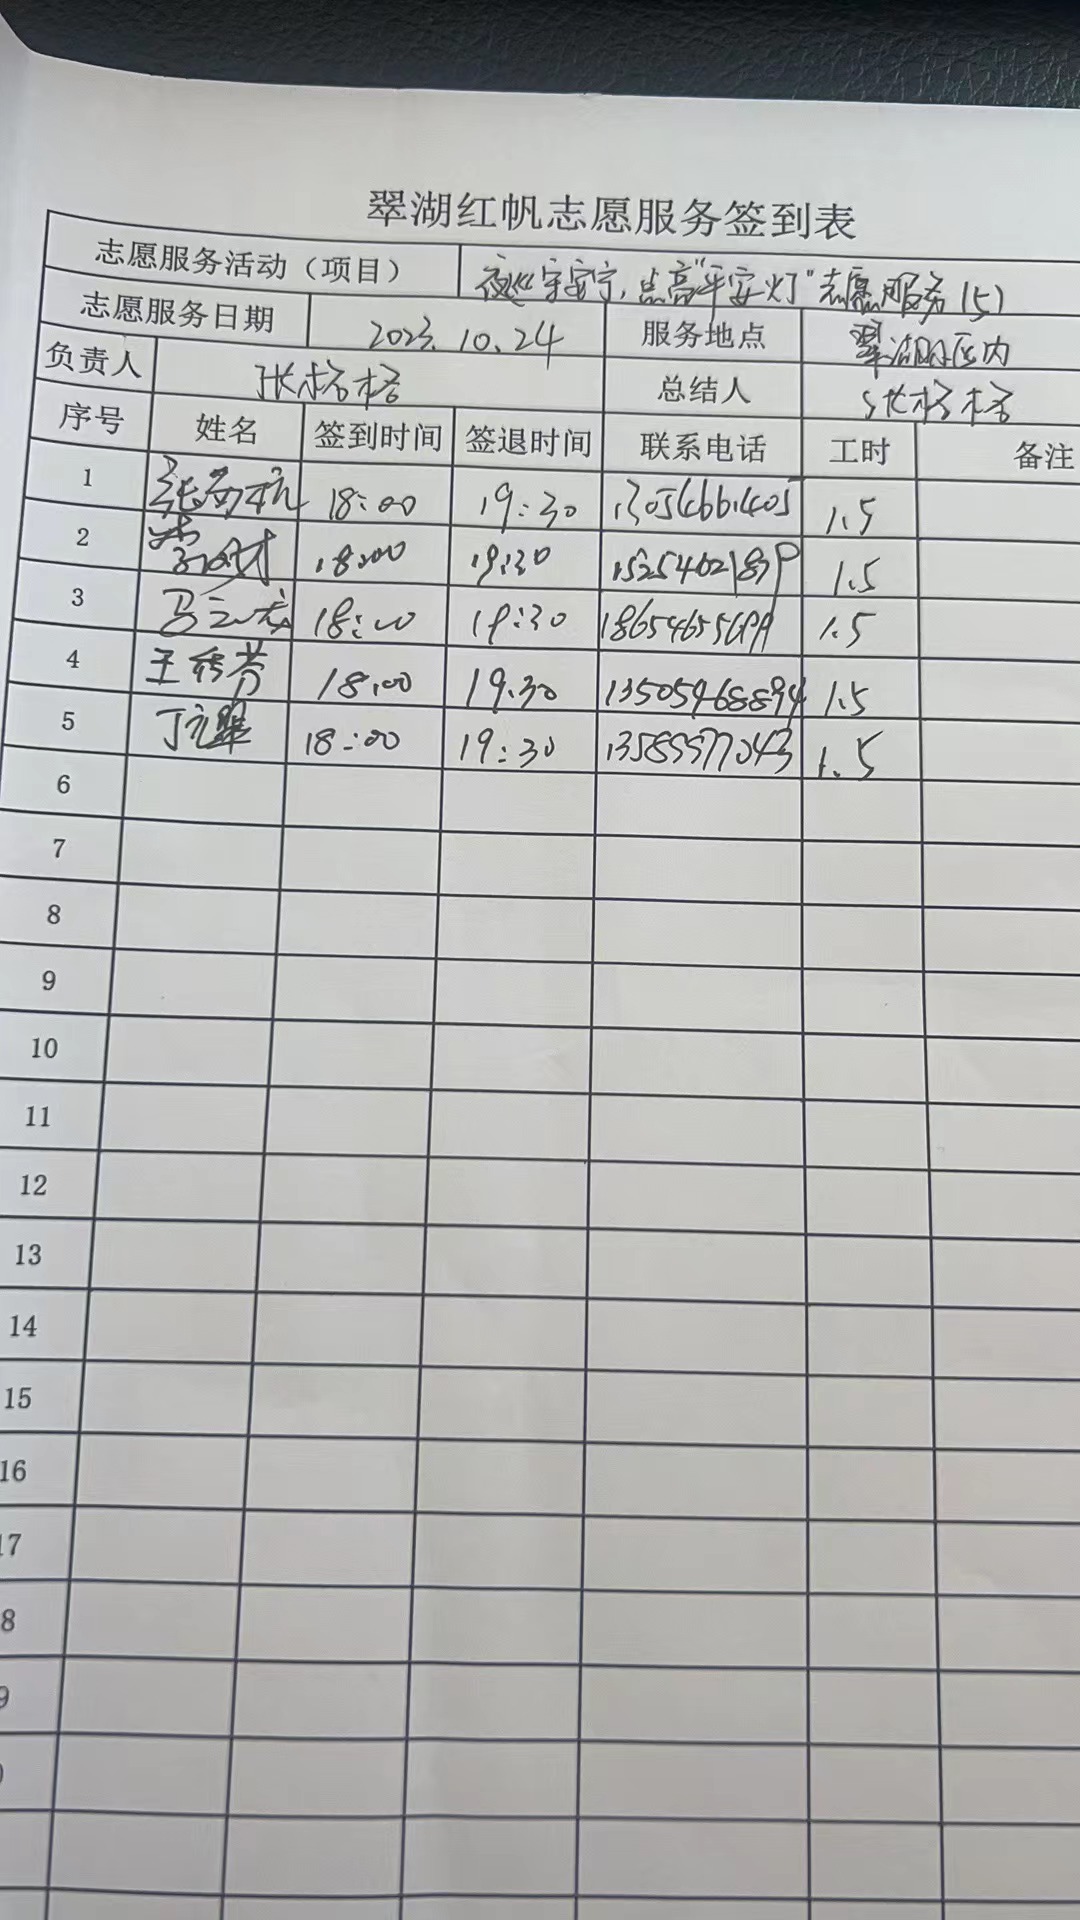 翠湖红帆志愿服务签到表
志愿服务活动（项目） 夜巡守安宁，点亮“平安灯”志愿服务（5）
志愿服务日期 2023.10.24 服务地点 翠湖社区内
负责人 张格格 总结人 张格格
序号 姓名 签到时间 签退时间 联系电话 工时 备注
1 18:00 19:30 13054661405 1.5
2 18:00 19:30 1.5
3 18:00 19:30 1.5
4 王秀芳 18:00 19:30 13505468894 1.5
5 丁元翠 18:00 19:30 13589977043 1.5
6
7
8
9
10
11
12
13
14
15
16
17
8
9